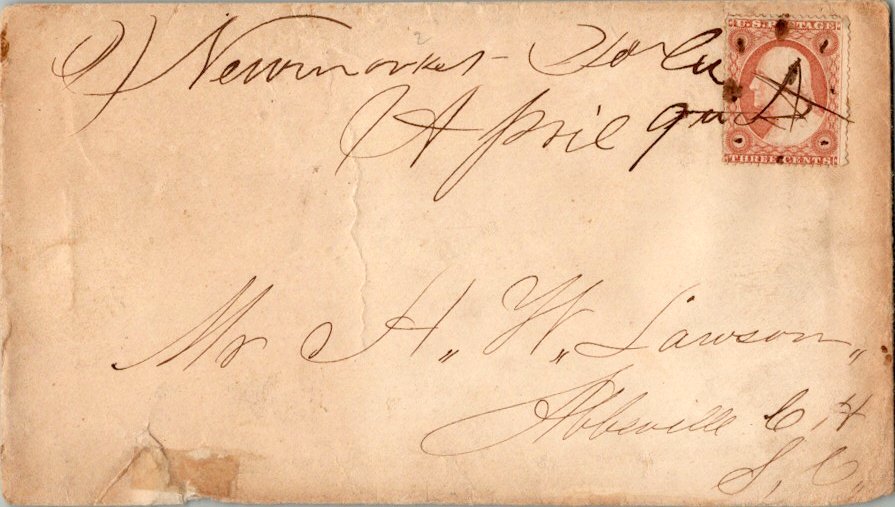 Newmarket
April 9th
U.S. POSTAGE
THREE CENTS
Mr H. W. Lawson,
Abbeville C, H
S, C,